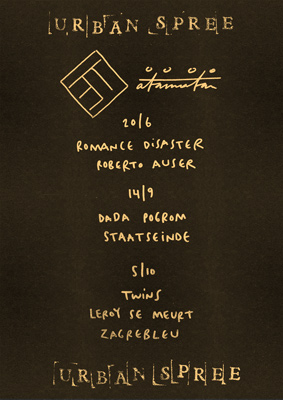 URBAN SPREE
20/6
ROMANCE DISASTER
ROBERTO AUSER
14/9
DADA POGROM
STAATSEINDE
5/10
TWINS
LEROY SE MEURT
ZAGREBLEU
URBAN SPREE